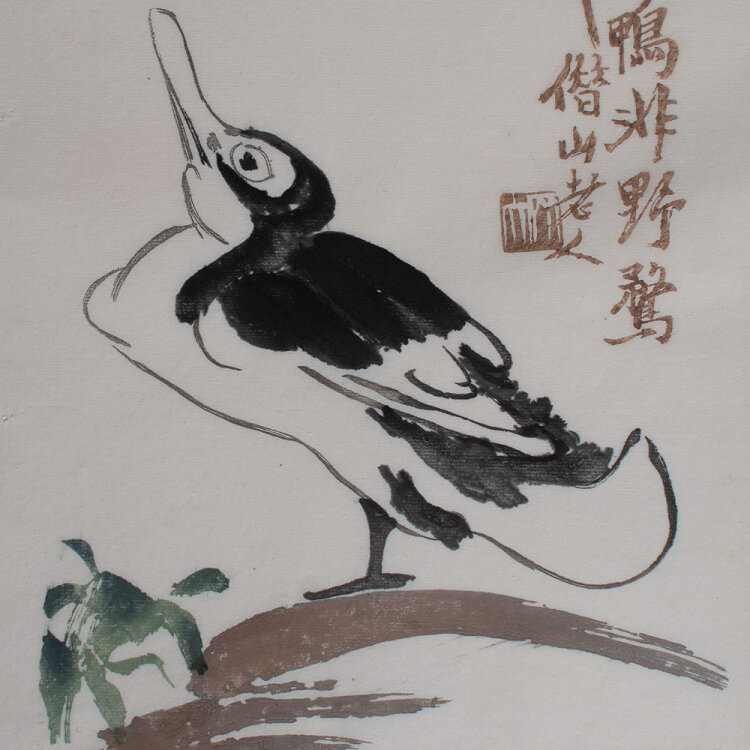 鴨非野鶩
借山老人